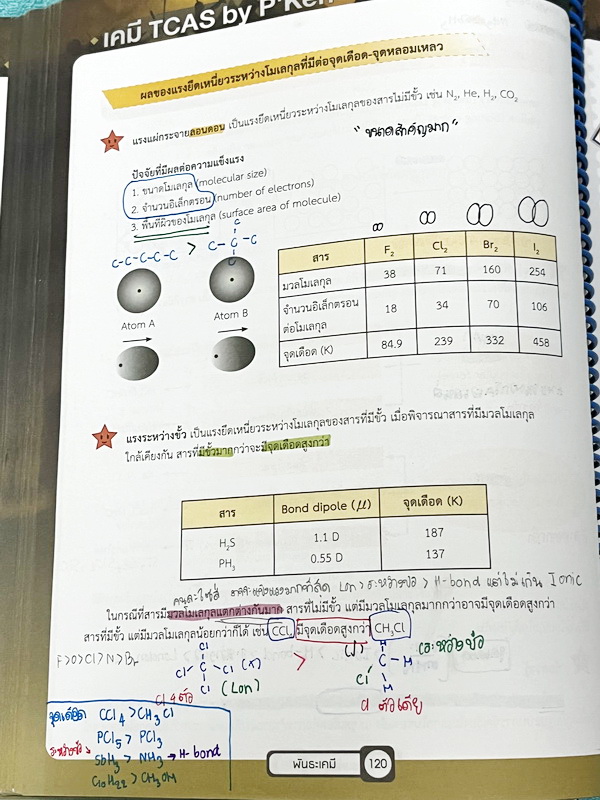 เคมี TCAS by P'Ken
ผลของแรงยึดเหนี่ยวระหว่างโมเลกุลที่มีต่อจุดเดือด-จุดหลอมเหลว
แรงแผ่กระจายลอนดอน เป็นแรงยึดเหนี่ยวระหว่างโมเลกุลของสารไม่มีขั้ว เช่น N₂, He, H₂, CO₂
"ขนาดสำคัญมาก"
ปัจจัยที่มีผลต่อความแข็งแรง
1. ขนาดโมเลกุล (molecular size)
2. จำนวนอิเล็กตรอน (number of electrons)
3. พื้นที่ผิวของโมเลกุล (surface area of molecule)
C-C-C-C-C > C-C-C
C
C
Atom A Atom B
สาร F₂ Cl₂ Br₂ I₂
มวลโมเลกุล 38 71 160 254
จำนวนอิเล็กตรอนต่อโมเลกุล 18 34 70 106
จุดเดือด (K) 84.9 239 332 458
แรงระหว่างขั้ว เป็นแรงยึดเหนี่ยวระหว่างโมเลกุลของสารที่มีขั้ว เมื่อพิจารณาสารที่มีมวลโมเลกุล
ใกล้เคียงกัน สารที่มีขั้วมากกว่าจะมีจุดเดือดสูงกว่า
สาร Bond dipole (μ) จุดเดือด (K)
H₂S 1.1 D 187
PH₃ 0.55 D 137
Lon > ระหว่างขั้ว > H-bond แต่ไม่เกิน Ionic
ในกรณีที่สารมีมวลโมเลกุลแตกต่างกันมาก สารที่ไม่มีขั้ว แต่มีมวลโมเลกุลมากกว่าอาจมีจุดเดือดสูงกว่า
สารที่มีขั้ว แต่มีมวลโมเลกุลน้อยกว่าก็ได้ เช่น CCl₄ มีจุดเดือดสูงกว่า CH₃Cl
F>O>Cl>N>Br
Cl
Cl C Cl
Cl
(Lon)
Cl 4 ตัว
>
H
C H
Cl
H
ระหว่างขั้ว
Cl ตัวเดียว
จุดเดือด CCl₄ > CH₃Cl
PCl₅ > PCl₃
ระหว่างขั้ว SbH₃ > NH₃ → H-bond
C₁₀H₂₂ > CH₃OH
พันธะเคมี 120